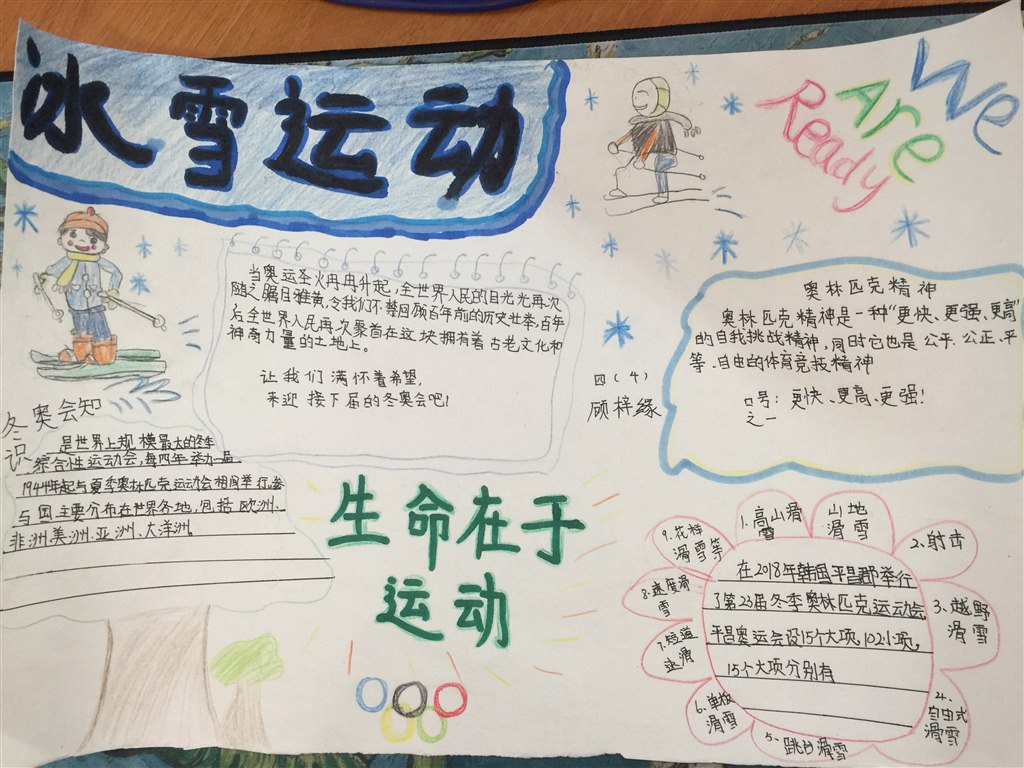 冰雪运动
We
Are
Ready
当奥运圣火冉冉升起,全世界人民的目光光再次
随之瞩目雅典,令我们不禁回顾百年前的历史壮举,百年
后全世界人民再次聚首在这块拥有着古老文化和
神奇力量的土地上。
让我们满怀着希望,
来迎接下届的冬奥会吧!
四(4)
顾梓缘
奥林匹克精神
奥林匹克精神是一种“更快、更强、更高”
的自我挑战精神,同时它也是公平、公正、平
等、自由的体育竞技精神
口号:更快、更高、更强!
之一
冬奥会知
识
是世界上规模最大的冬年
综合性运动会,每四年举办一届
1944年起与夏季奥林匹克运动会相间举行。参
与国主要分布在世界各地,包括欧洲、
非洲、美洲、亚洲、大洋洲。
生命在于
运动
在2018年韩国平昌郡举行
了第23届冬季奥林匹克运动会
平昌奥运会设15个大项,102小项。
15个大项分别有
1.高山滑
雪
山地
滑雪
2.射击
3.越野
滑雪
4.
自由式
滑雪
5.跳台滑雪
6.单板
滑雪
7.短道
速滑
8.速度滑
雪
9.花样
滑雪等